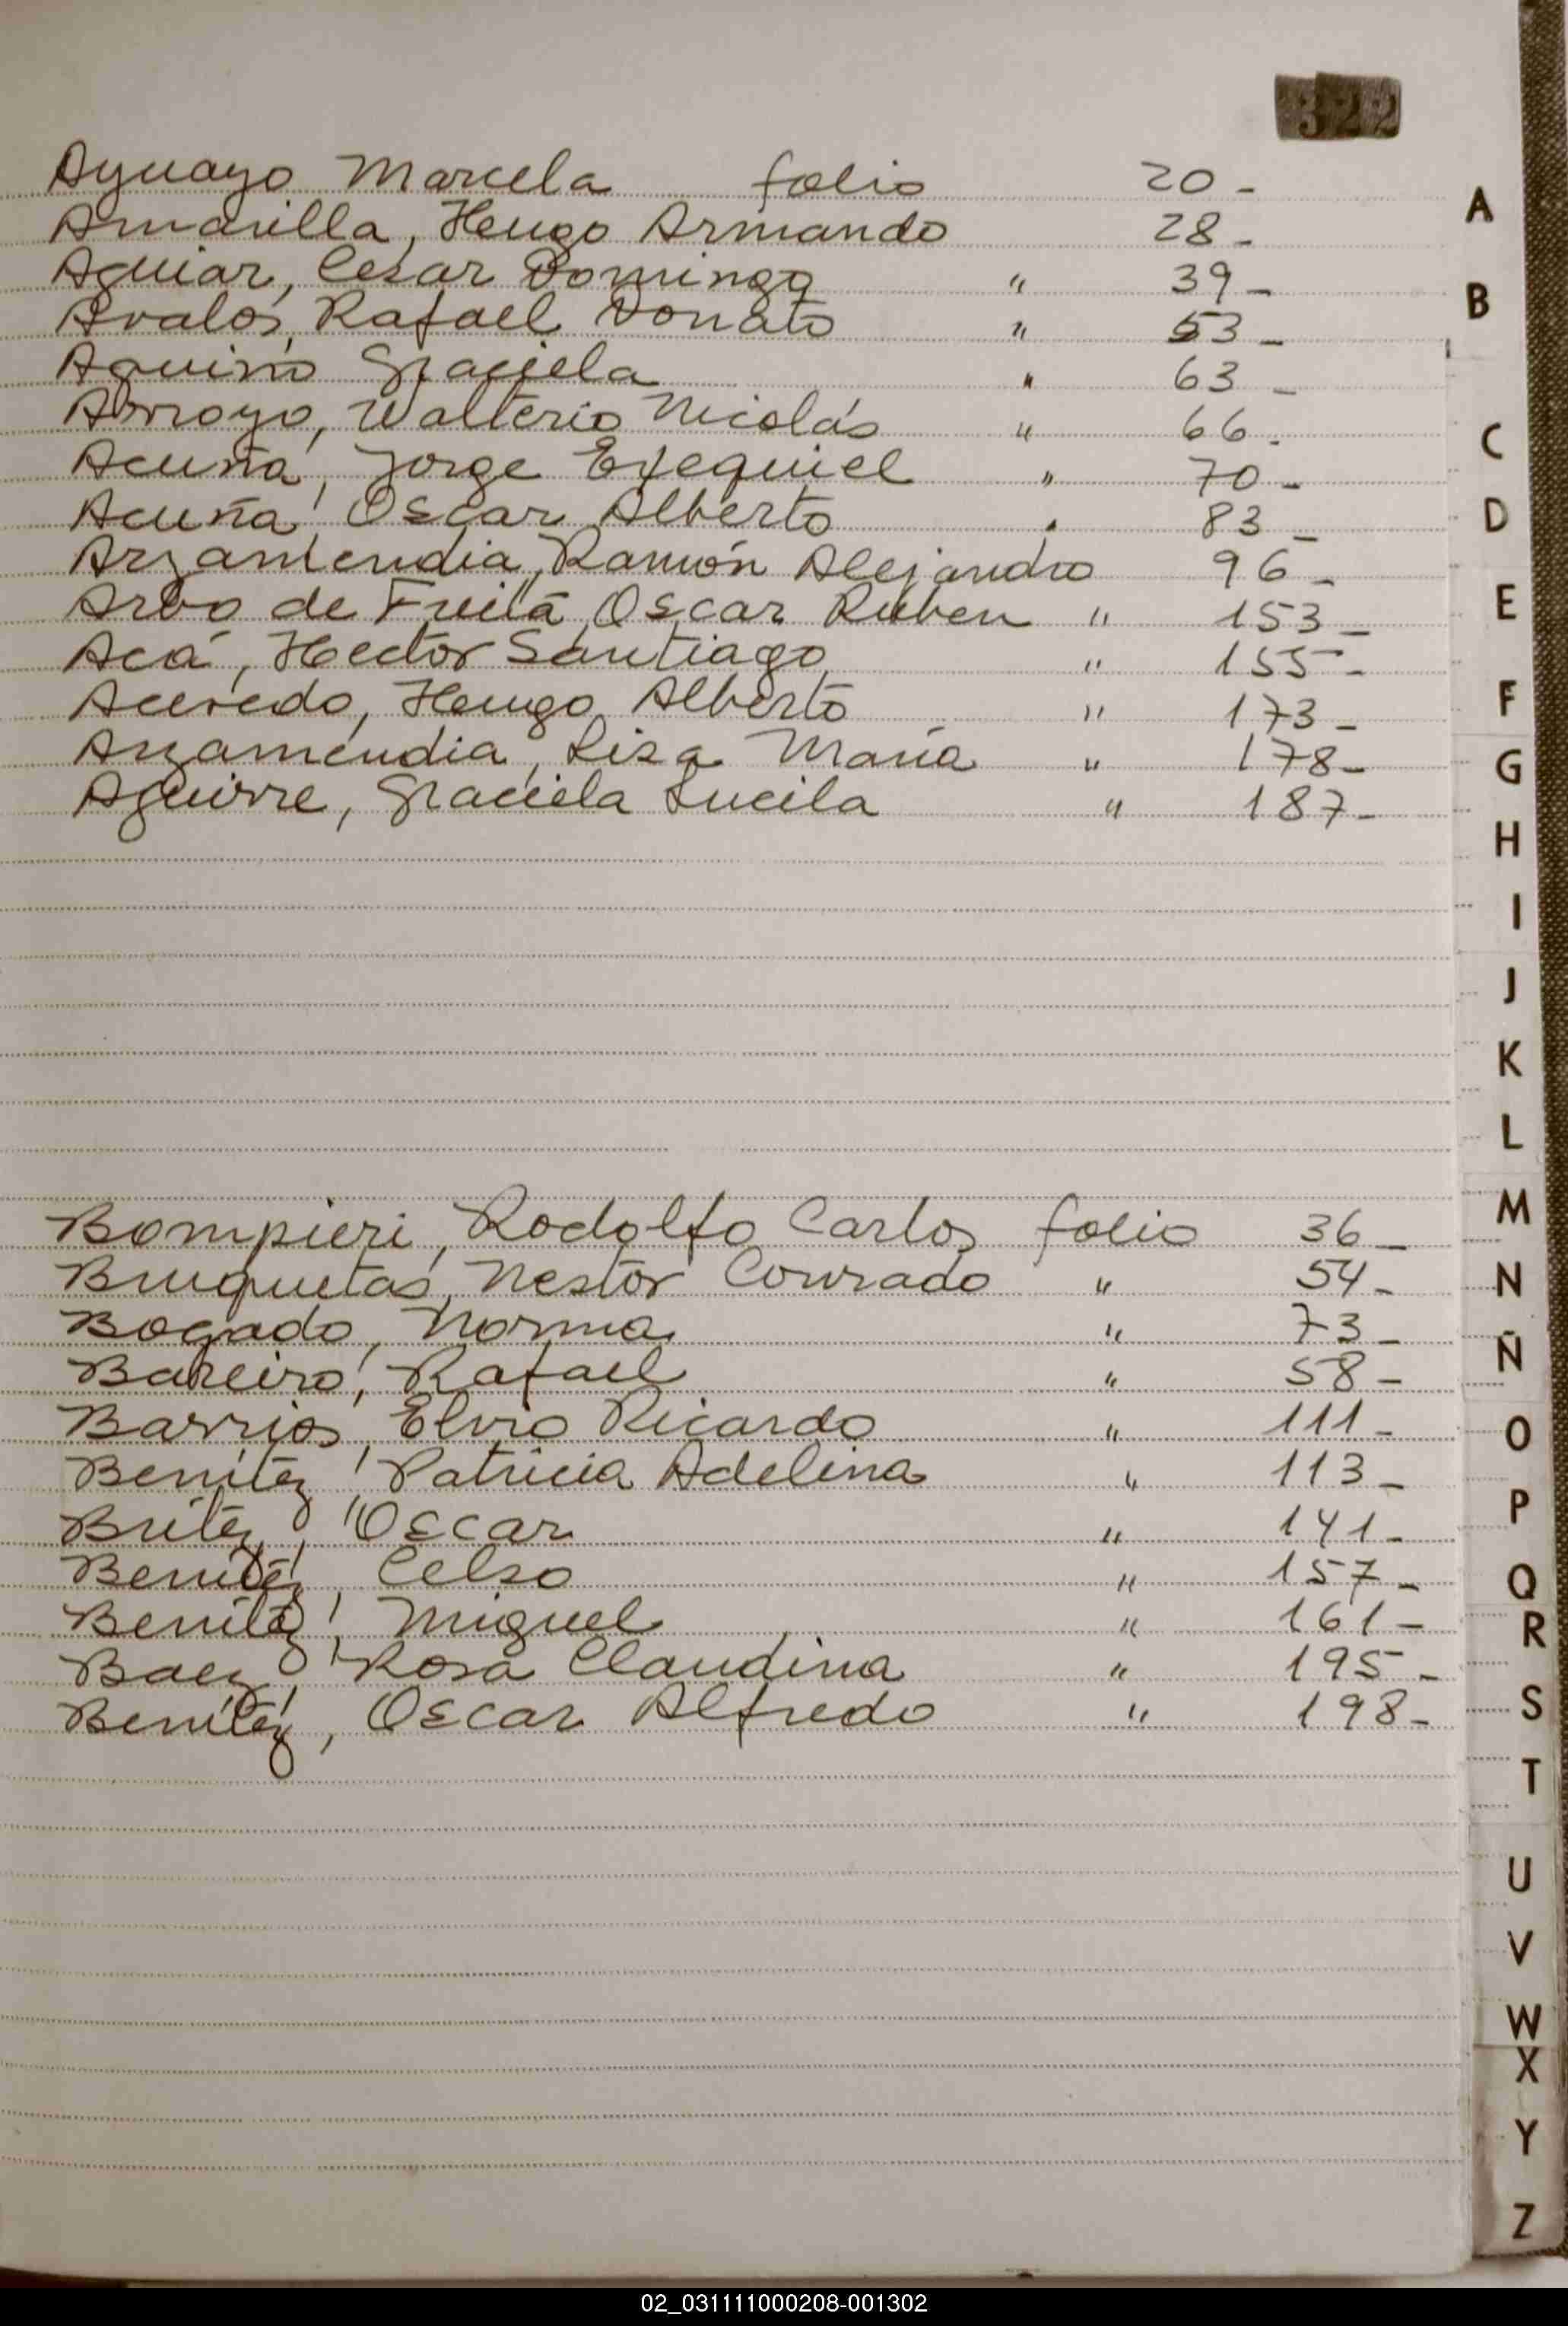 322
Aguayo Marcela folio 20 -
Amarilla, Hugo Armando 28 -
Aguiar, Cesar Domingo " 39 -
Avalos, Rafael Donato " 53 -
Aquino Graciela " 63 -
Arroyo, Walterio Nicolás " 66 -
Acuña, Jorge Ezequiel " 70 -
Acuña, Oscar Alberto " 83 -
Arzamendia, Ramón Alejandro 96 -
Arbo de Freita, Oscar Ruben " 153 -
Acá, Hector Santiago " 155 -
Acevedo, Hugo Alberto " 173 -
Arzamendia, Lisa María " 178 -
Aguirre, Graciela Lucila " 187 -
Bompieri, Rodolfo Carlos folio 36 -
Bruquetas, Nestor Conrado " 54 -
Bogado, Norma " 73 -
Bareiro, Rafael " 58 -
Barrios, Elvio Ricardo " 111 -
Benitez, Patricia Adelina " 113 -
Britez, Oscar " 141 -
Benitez, Celso " 157 -
Benitez, Miguel " 161 -
Baez, Rosa Claudina " 195 -
Benítez, Oscar Alfredo " 198 -
A
B
C
D
E
F
G
H
I
J
K
L
M
N
Ñ
O
P
Q
R
S
T
U
V
W
X
Y
Z
02_031111000208-001302